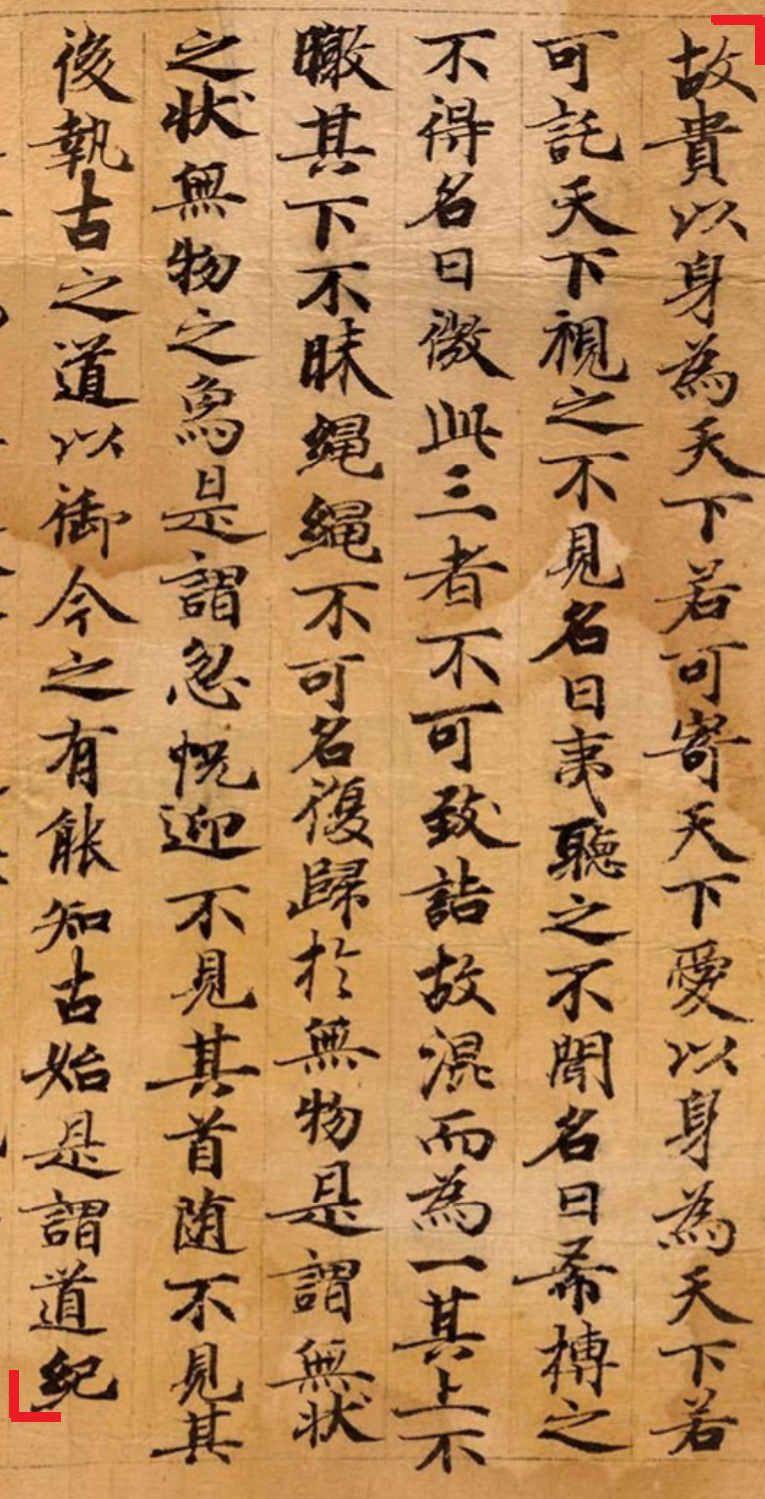 故貴以身為天下若可寄天下愛以身為天下若
可託天下視之不見名曰夷聽之不聞名曰希搏之
不得名曰微此三者不可致詰故混而為一其上不
曒其下不昧繩繩不可名復歸於無物是謂無狀
之狀無物之象是謂忽恍迎不見其首随不見其
後執古之道以御今之有能知古始是謂道紀